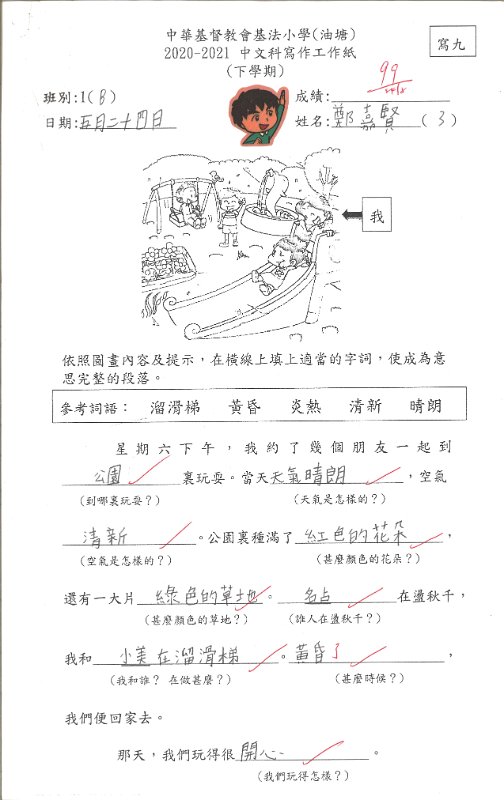 中華基督教會基法小學(油塘)
2020-2021 中文科寫作工作紙
(下學期)
寫九
班別:1(B)
成績: 99
日期:五月二十四日
姓名:鄭嘉賢(3)
我
依照圖畫內容及提示,在橫線上填上適當的字詞,使成為意
思完整的段落。
參考詞語: 溜滑梯 黃昏 炎熱 清新 晴朗
星期六下午,我約了幾個朋友一起到
公園裏玩耍。當天天氣晴朗,空氣
(到哪裏玩耍?) (天氣是怎樣的?)
清新。公園裏種滿了紅色的花朵,
(空氣是怎樣的?) (甚麼顏色的花朵?)
還有一大片綠色的草地。在盪秋千,
(甚麼顏色的草地?) (誰人在盪秋千?)
我和小美在溜滑梯。黃昏了,
(我和誰? 在做甚麼?) (甚麼時候?)
我們便回家去。
那天,我們玩得很開心。
(我們玩得怎樣?)